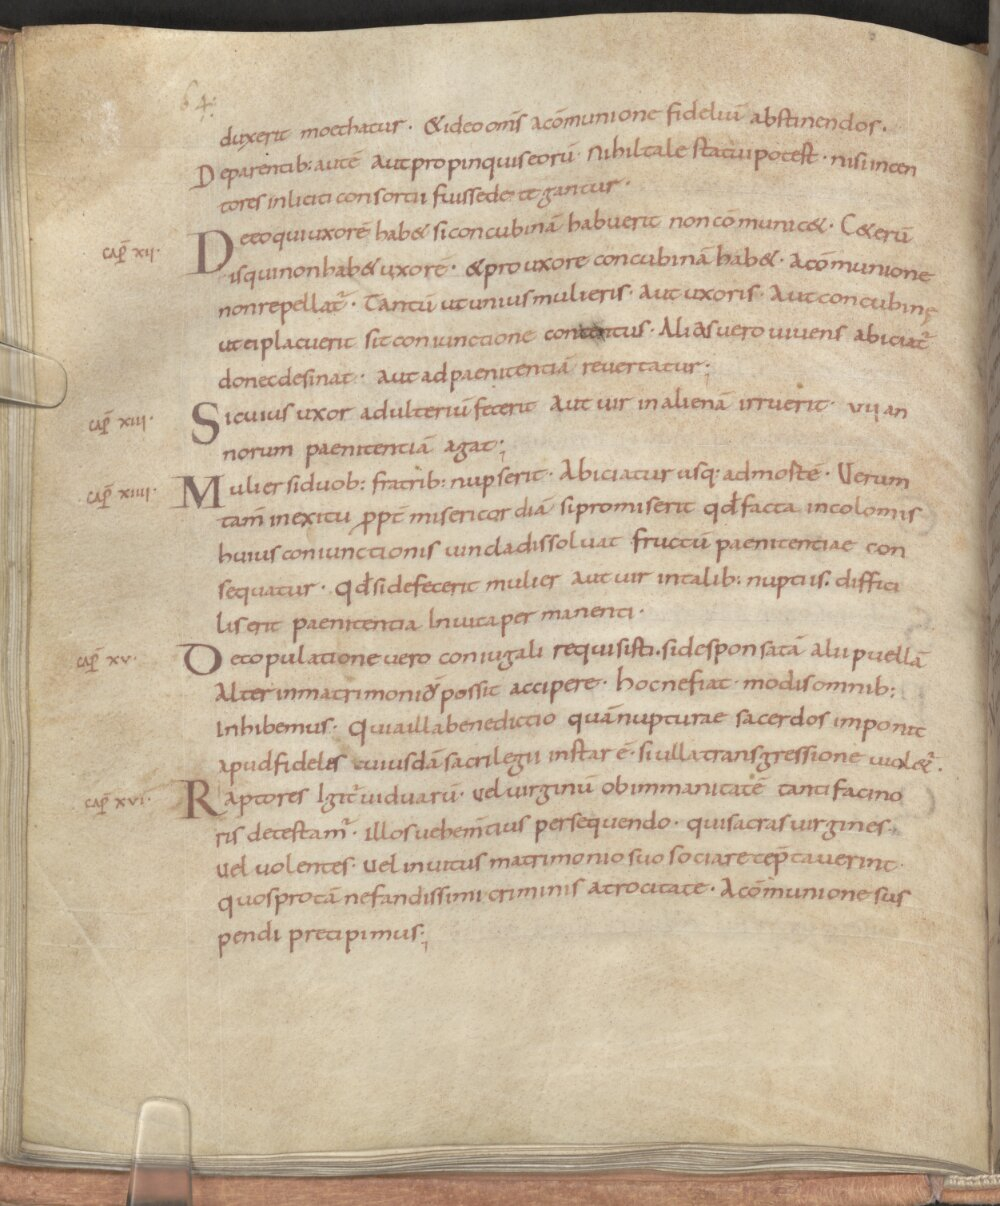 64:
duxerit moechatur · &ideo om̄s acōmunione fideliū abstinendos.
Deparentib: autē Aut propinquis eorū · Nihil tale statui potest · nisi incen
tores inliciti consortii fuisse detegantur ·
cap̄ xii· De eo qui uxorē hab& si concubinā habuerit non cōmunic& · C&erū
is qui non hab& uxorē · & pro uxore concubinā hab& · Acōmunione
non repellat̄ · Tantū ut unius mulieris · Aut uxoris · Aut concubinę
ut ei placuerit sit coniunctione contentus · Alias vero vivens abiciat̄
donec desinat · Aut ad paenitentiā revertatur ;
cap̄ xiii· Si cuius uxor adulteriū fecerit Aut vir in alienā irruerit · vii an
norum paenitentiā agat ;
cap̄ xiiii· Mulier si duob: fratrib: nupserit · Abiciatur usq: ad mortē · Verum
tam̄ in exitu ꝓpt̄ misericordiā si promiserit qđ facta incolomis
huius coniunctionis vincla dissolvat fructū paenitentiae con
sequatur · Qđ si defecerit mulier Aut vir in talib: nuptiis. diffici
lis erit paenitentia In vita permanenti ·
cap̄ xv· De copulatione vero coniugali requisisti. si desponsatā alii puellā
Alter in matrimoniū possit accipere · hoc ne fiat · modis omnib:
Inhibemus · Quia illa benedictio quā nupturae sacerdos imponit
apud fideles cuiusdā sacrilegii instar ē · si ulla transgressione viol&̄ .
cap̄ xvi· Raptores Igit̄ viduarū · vel virginū ob immanitatē tanti facino
ris detestam̄ · Illos vehem̄tius persequendo · qui sacras virgines,
vel volentes · vel invitus matrimonio suo sociare tep̄taverint ·
quos pro tā nefandissimi criminis atrocitate · Acōmunione sus
pendi precipimus ;